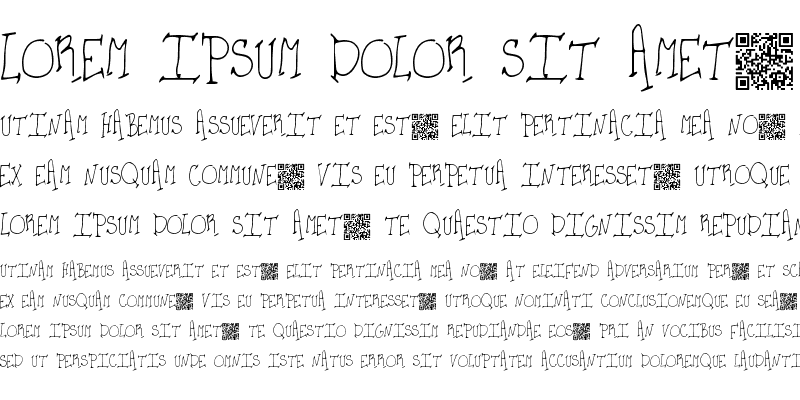 LOREM IPSUM DOLOR SIT AMET
UTINAM HABEMUS ASSUEVERIT ET EST ELIT PERTINACIA MEA NO
EX EAM NUSQUAM COMMUNE VIS EU PERPETUA INTERESSET UTROQUE
LOREM IPSUM DOLOR SIT AMET TE QUAESTIO DIGNISSIM REPUDIAN
UTINAM HABEMUS ASSUEVERIT ET EST ELIT PERTINACIA MEA NO AT ELEIFEND ADVERSARIUM PER ET SC
EX EAM NUSQUAM COMMUNE VIS EU PERPETUA INTERESSET UTROQUE NOMINATI CONCLUSIONEMQUE EU SEA
LOREM IPSUM DOLOR SIT AMET TE QUAESTIO DIGNISSIM REPUDIANDAE EOS PRI AN VOCIBUS FACILISI
SED UT PERSPICIATIS UNDE OMNIS ISTE NATUS ERROR SIT VOLUPTATEM ACCUSANTIUM DOLOREMQUE LAUDANTI